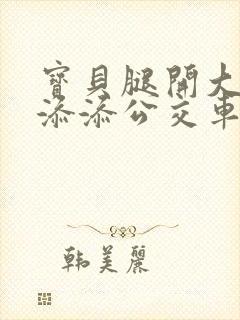 寶貝腿開大
添添公交車
韩美麗